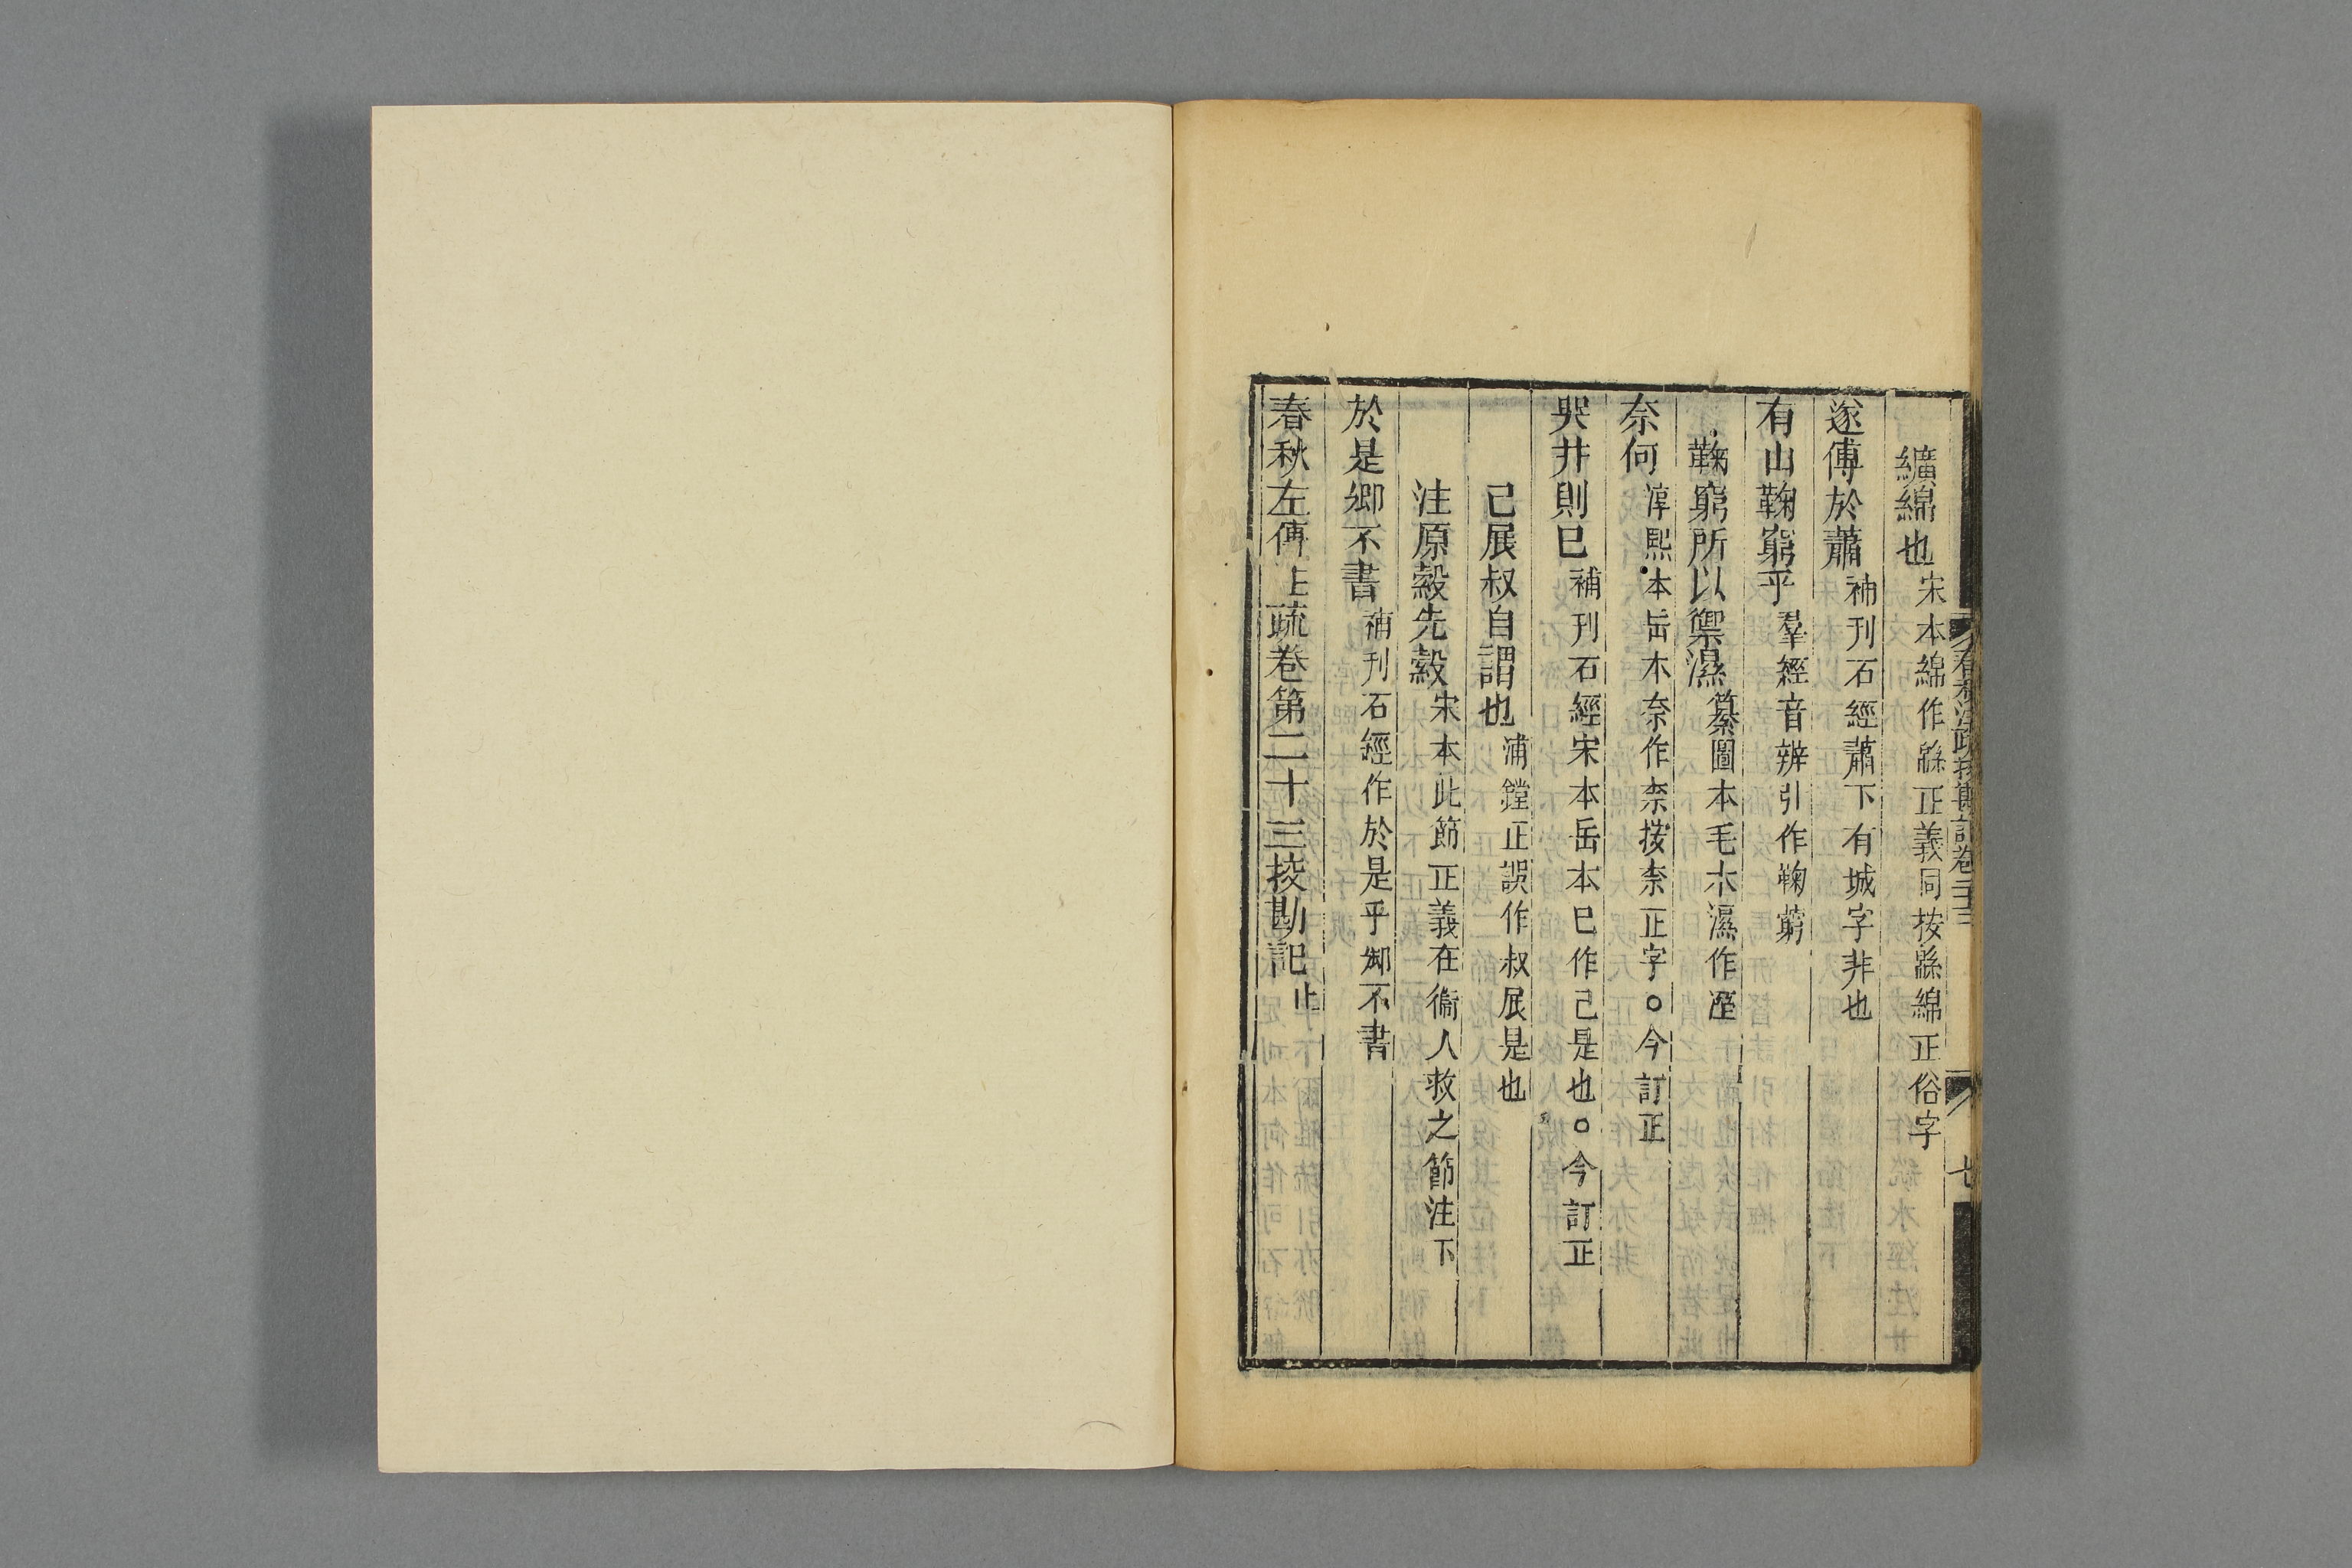 春秋注疏挍勘記卷二十三
七
纊綿也宋本綿作緜正義同按緜綿正俗字
遂傅於蕭補刊石經蕭下有城字非也
有山鞠窮乎羣經音辨引作鞠藭
鞠窮所以禦濕纂圖本毛本濕作溼
奈何淳熙本岳本奈作柰按柰正字○今訂正
哭井則巳補刊石經宋本岳本巳作己是也○今訂正
己展叔自謂也浦鏜正誤作叔展是也
注原縠先縠宋本此節正義在衞人救之節注下
於是卿不書補刊石經作於是乎卿不書
春秋左傳上疏卷第二十三挍勘記止